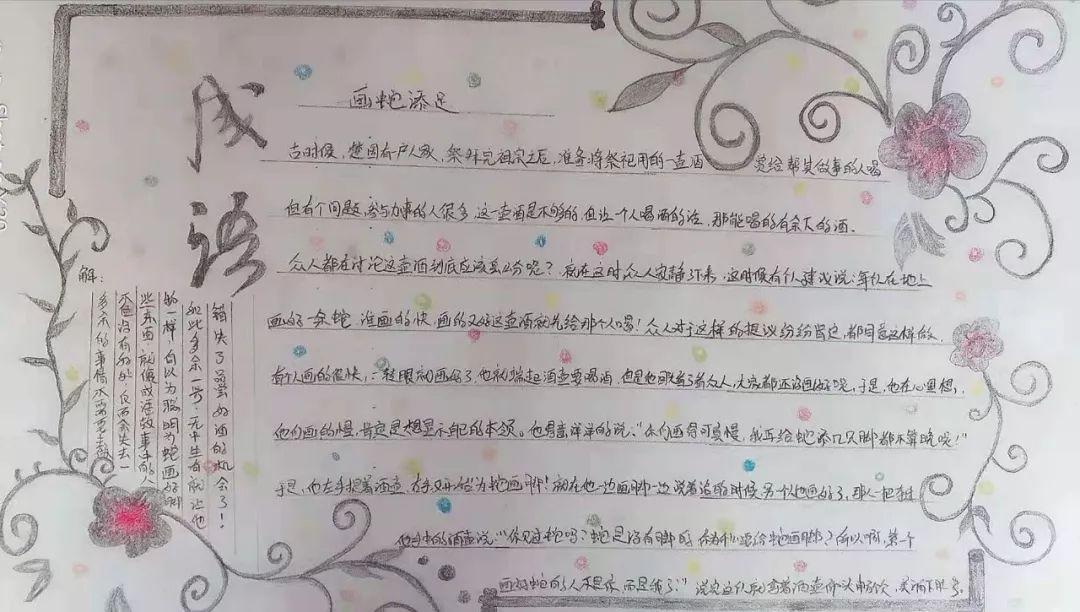 成语
画蛇添足
古时候，楚国有户人家，祭拜完祖宗之后，准备将祭祀用的一壶酒 赏给帮其做事的人喝
但有个问题，参与办事的人很多 这一壶酒是不够的，但让一个人喝酒的话，那能喝的有余下的酒.
众人都在讨论这壶酒到底应该怎么分呢？就在这时众人寂静下来，这时候有人建议说：年伙在地上
画好一条蛇，谁画的快，画的又好这壶酒就先给那个人喝！众人对于这样的提议纷纷肯定，都同意这样做.
有个人画的很快，一转眼就画好了，他就端起酒壶要喝酒，但是他眼看了看众人，大家都还没画好呢，于是，他在心里想，
他们画的慢，肯定是想显示自己的本领。他得意洋洋的说："你们画得可真慢，我再给蛇添几只脚都不算晚呢！"
于是，他左手提着酒壶，右手又开始为蛇画脚！就在他一边画脚一边说着话的时候另个他画好了，那人一把抢过
他手中的酒壶说："你见过蛇吗？蛇是没有脚的 你为什么要给蛇画脚？所以啊，第一个
画好蛇的人不是你，而是我了！"说完这人就拿着酒壶仰头畅饮，
解：
错失了品尝好酒的机会了！
如此多余一号，无中生有就让他
的一样 自以为聪明为蛇画好脚
些东西，就像成语故事中的人
不但没有好处，反而会失去一
多余的事情